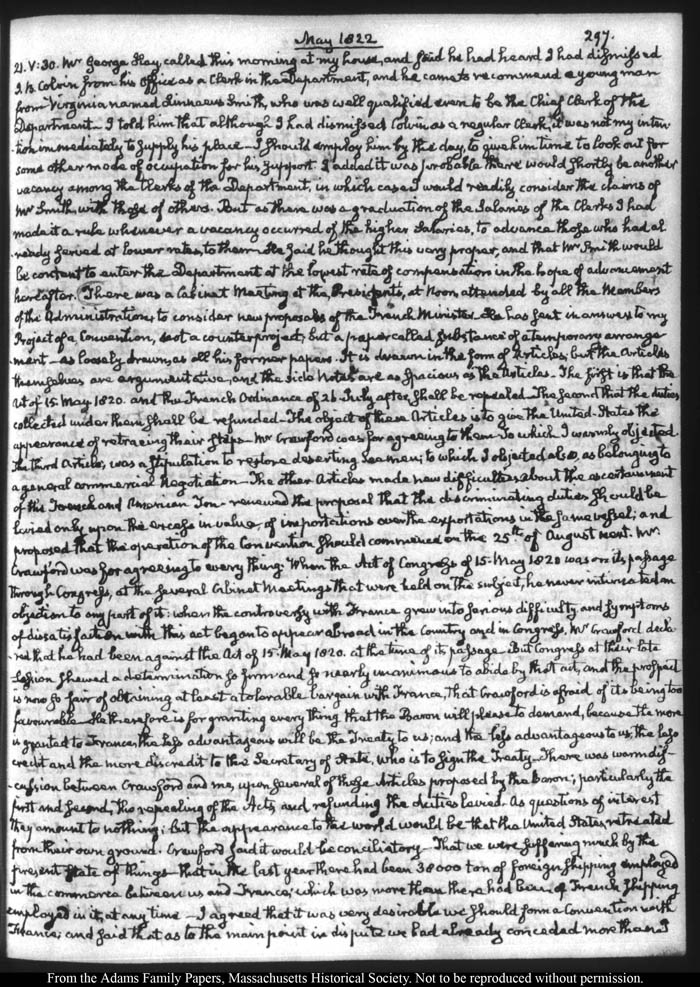 May 1822
297.
21. V:30. Mr George Hay, called this morning at my house, and said he had heard I had dismissed
J. B. Colvin from his office as a Clerk in the Department, and he came to recommend a young man
from Virginia named Linnaeus Smith, who was well qualified even to be the Chief Clerk of the
Department. I told him that although I had dismissed Colvin as a regular Clerk, it was not my inten
-tion immediately to supply his place. I should employ him by the day, to give him time to look out for
some other mode of occupation for his support. I added it was probable there would shortly be another
vacancy among the Clerks of the Department, in which case I would readily consider the claims of
Mr Smith, with those of others. But as there was a graduation of the Salaries of the Clerks I had
made it a rule whenever a vacancy occurred of the higher Salaries, to advance those who had al
-ready served at lower rates, to them. He said he thought this very proper, and that Mr Smith would
be content to enter the Department at the lowest rate of compensation in the hope of advancement
hereafter. There was a Cabinet Meeting at the President's, at Noon, attended by all the Members
of the Administration, to consider new proposals of the French Minister. He has sent in answer to my
Project of a Convention, not a counterproject, but a paper called Substance of a temporary arrange
-ment – as loosely drawn as all his former papers. It is drawn in the form of Articles; but the Articles
themselves are argumentative, and the side Notes are as spacious as the Articles. The first is that the
Act of 15 May 1820. and the French Ordinance of 26 July after, shall be repealed. The second that the duties
collected under them shall be refunded. The object of these Articles is to give the United States the
appearance of retracing their steps. Mr Crawford was for agreeing to them. To which I warmly objected.
The third Article, was a stipulation to restore deserting seamen; to which I objected also, as belonging to
a general commercial Negotiation. The other Articles made new difficulties about the ascertainment
of the French and American Ton – renewed the proposal that the discriminating duties should be
levied only upon the excess in value, of importations over the exportations in the same vessel; and
proposed that the operation of the Convention should commence on the 25th of August next. Mr
Crawford was for agreeing to every thing. When the Act of Congress of 15 May 1820 was on its passage
through Congress, at the several Cabinet Meetings that were held on the subject, he never intimated an
objection to any part of it: when the controversy with France grew into serious difficulty and symptoms
of dissatisfaction with this act began to appear abroad in the Country and in Congress, Mr Crawford decla
-red that he had been against the Act of 15 May 1820. at the time of its passage. But Congress at their late
Session shewed a determination so firm and so nearly unanimous to abide by that act, and the prospect
is now so fair of obtaining at least a tolerable bargain with France, that Crawford is afraid of its being too
favourable. He therefore is for granting every thing that the Baron will please to demand, because the more
is granted to France, the less advantageous will be the Treaty to us; and the less advantageous to us, the less
credit and the more discredit to the Secretary of State, who is to sign the Treaty. There was warm dis-
-cussion between Crawford and me, upon several of these Articles proposed by the Baron; particularly the
first and second, the repealing of the Acts, and refunding the duties levied. As questions of interest
they amount to nothing; but the appearance to the world would be that the United States retreated
from their own ground. Crawford said it would be conciliatory. That we were suffering much by the
present state of things – that in the last year there had been 38000 ton of foreign shipping employed
in the commerce between us and France; which was more than there had been of French Shipping
employed in it, at any time – I agreed that it was very desirable we should form a Convention with
France; and said that as to the main point in dispute we had already conceded more than I
From the Adams Family Papers, Massachusetts Historical Society. Not to be reproduced without permission.